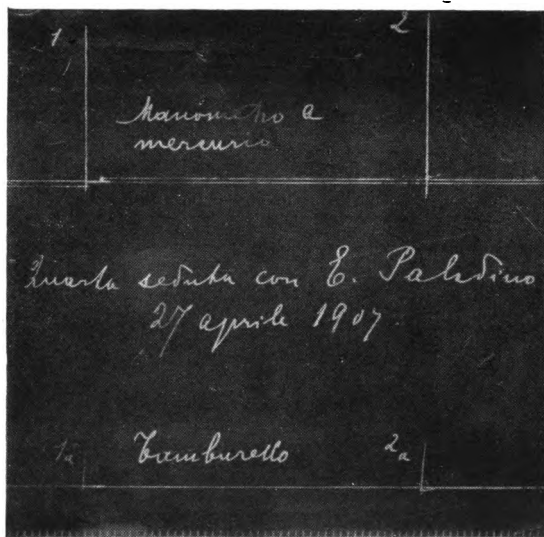 1 2
Manometro a
mercurio
Quarta seduta con E. Paladino
27 aprile 1907.
1a Tamburello 2a